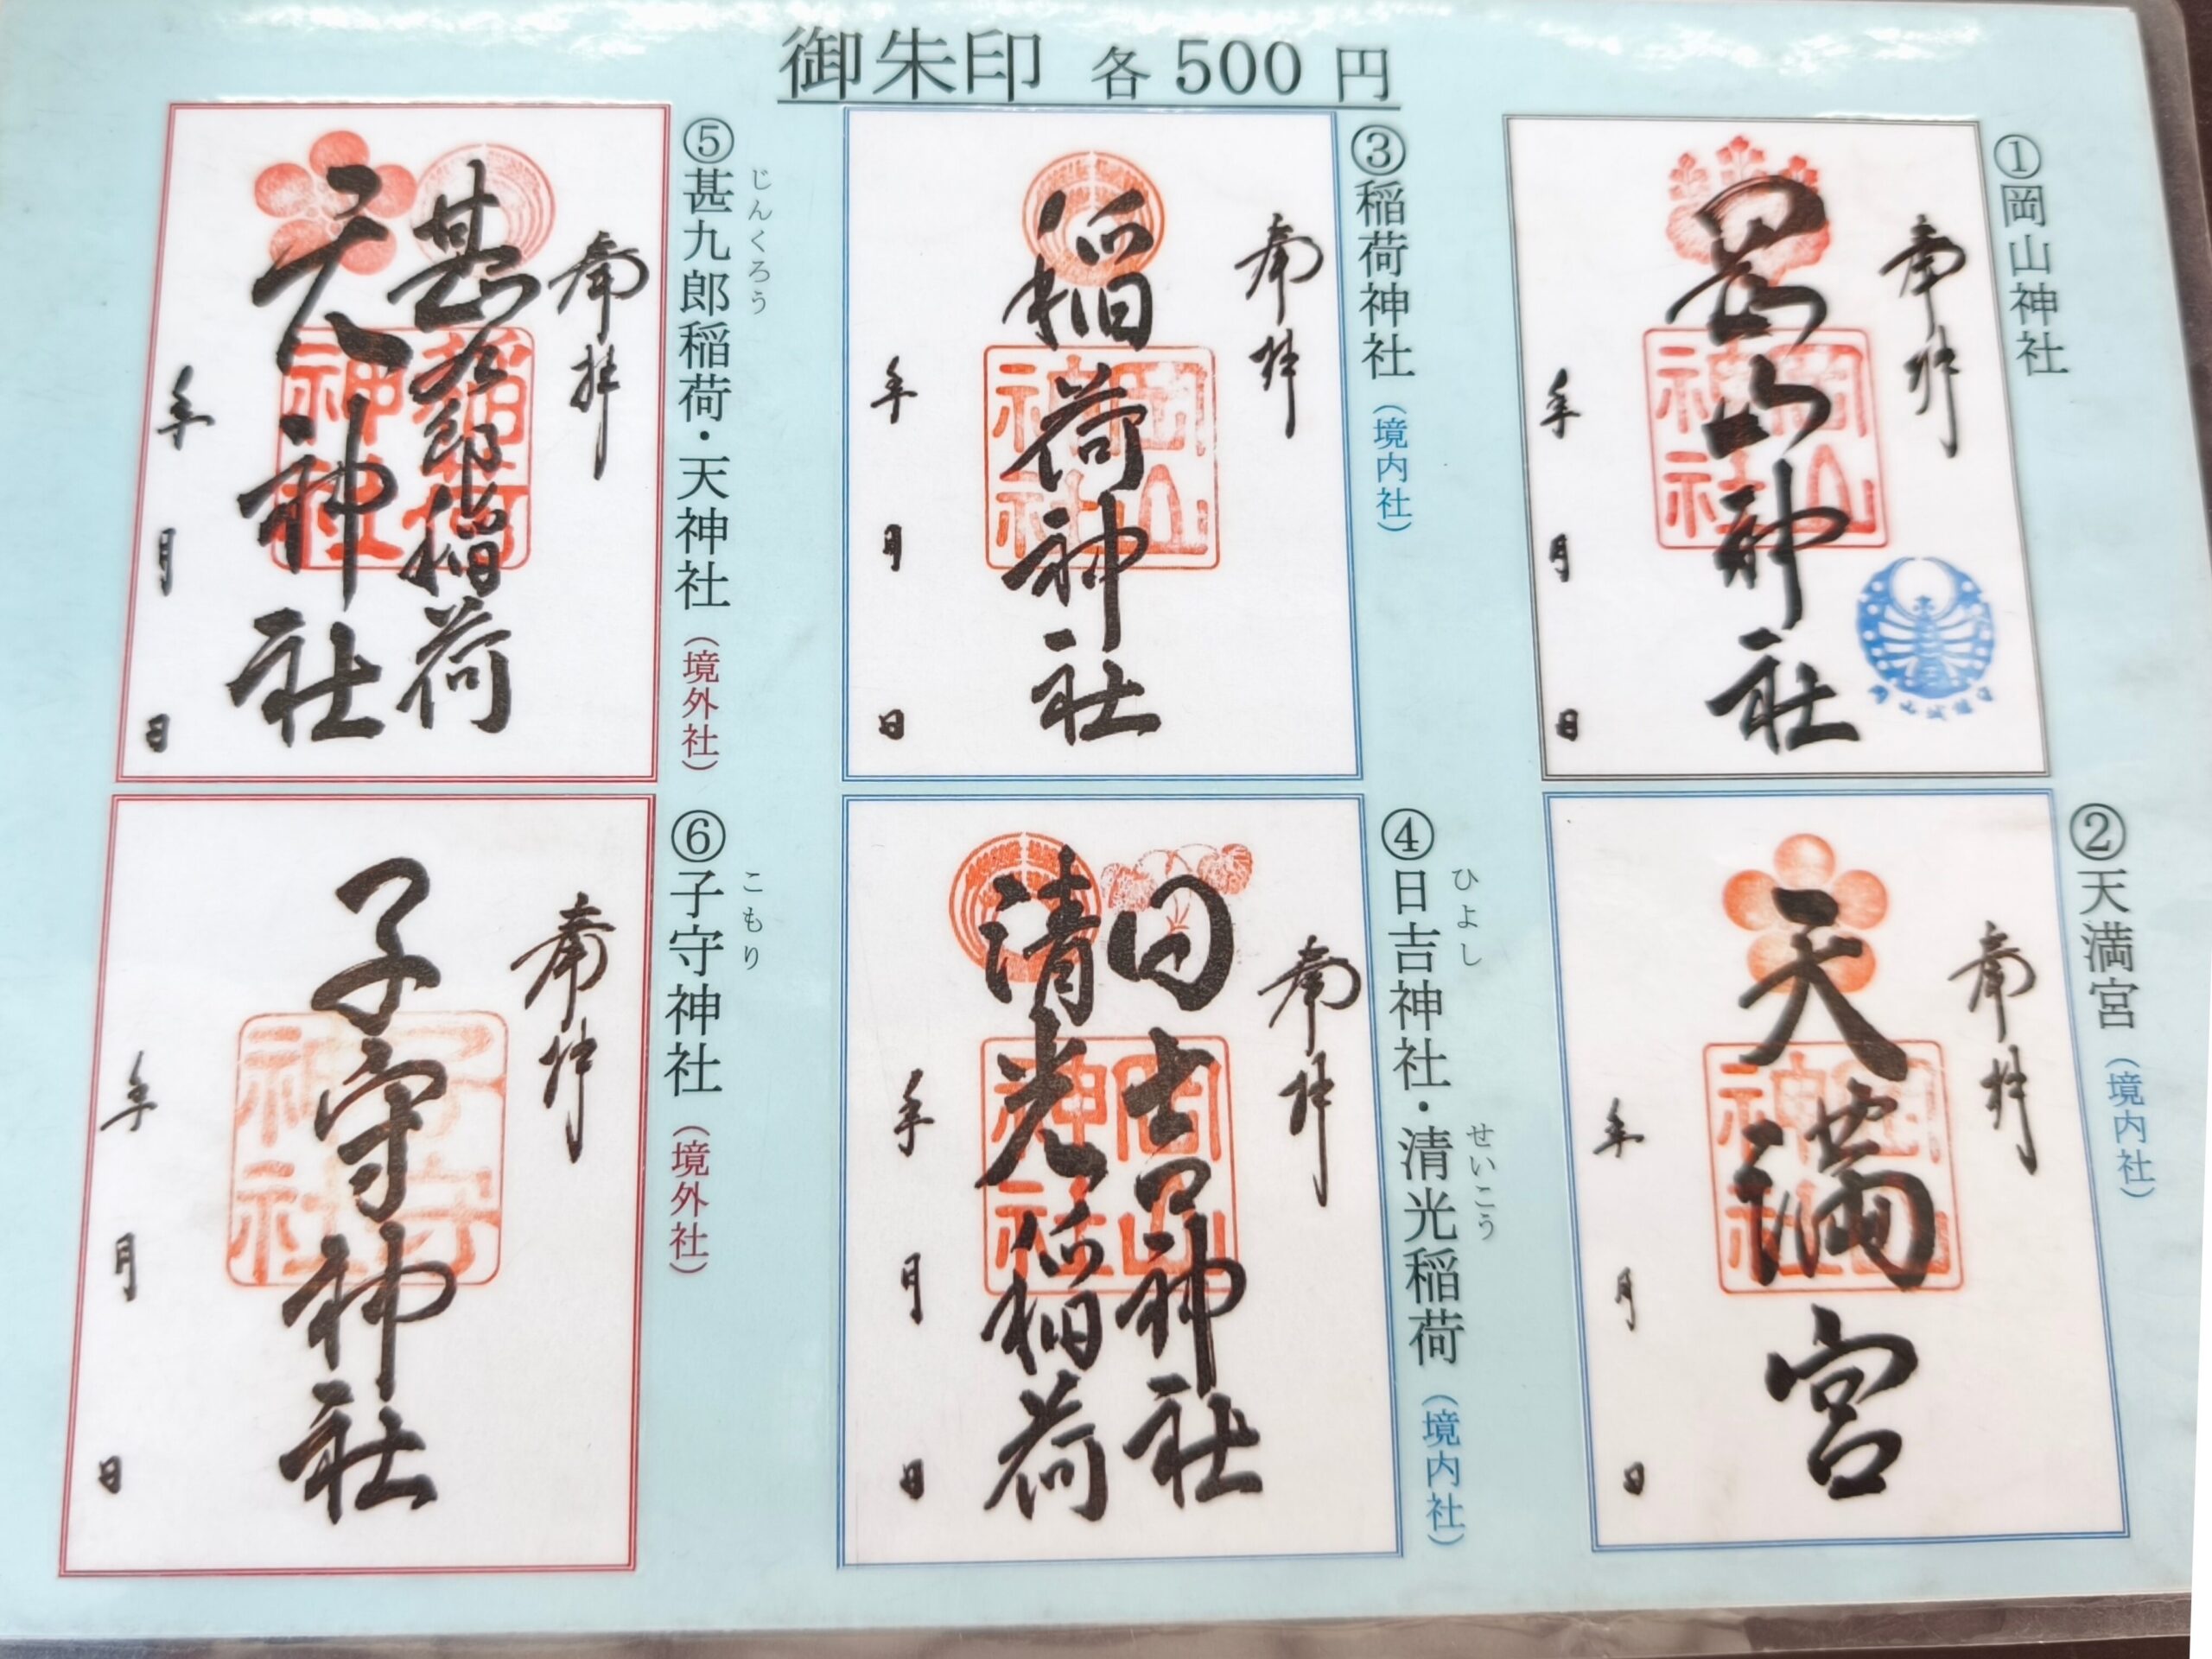 御朱印 各500円
①岡山神社
奉拝
岡山神社
岡山神社
年 月 日
②天満宮（境内社）
奉拝
天満宮
岡山神社
年 月 日
③稲荷神社（境内社）
奉拝
稲荷神社
岡山神社
年 月 日
④日吉神社・清光稲荷（境内社）
ひよし
せいこう
奉拝
日吉神社
清光稲荷
岡山神社
年 月 日
⑤甚九郎稲荷・天神社（境外社）
じんくろう
奉拝
甚九郎稲荷
天神社
稲荷神社
年 月 日
⑥子守神社（境外社）
こもり
奉拝
子守神社
子守神社
年 月 日